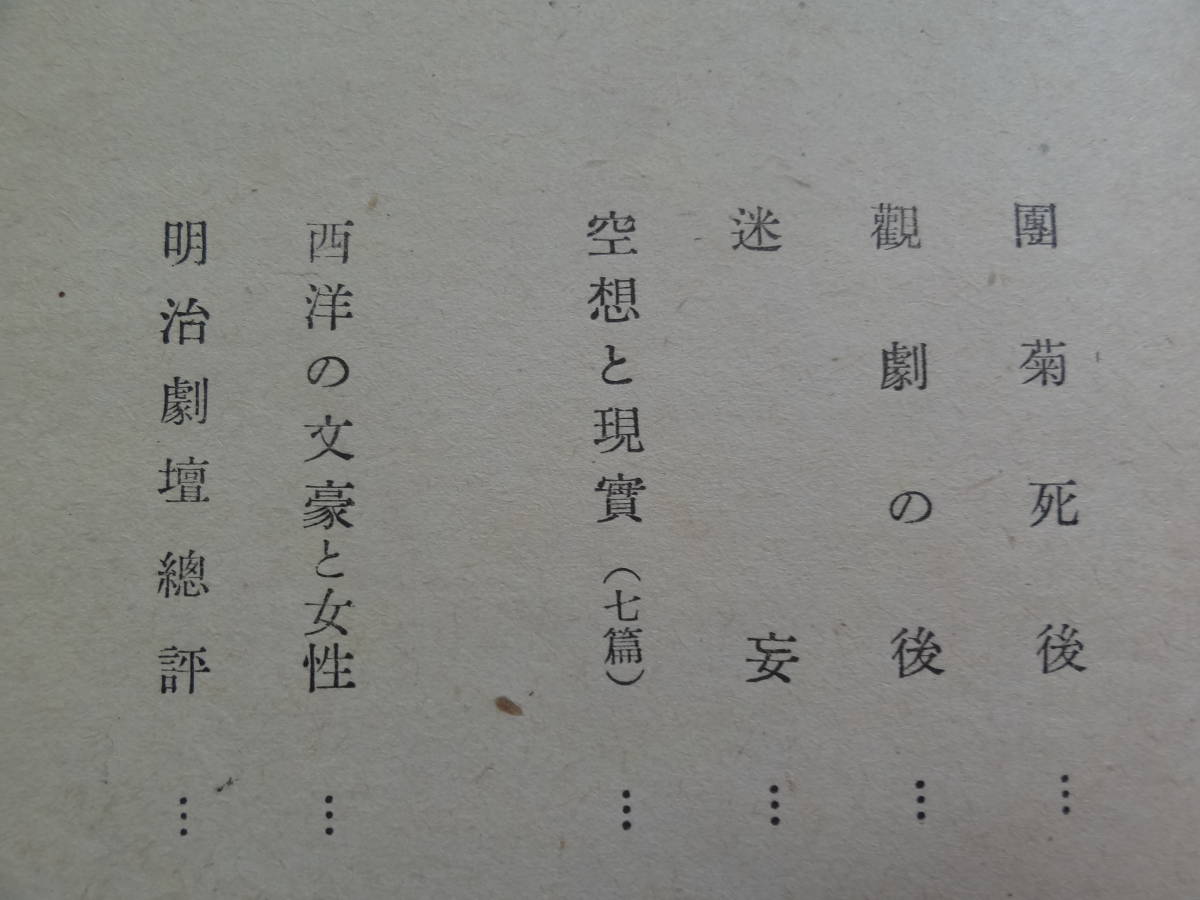 團菊死後…
觀劇の後…
迷妄…
空想と現實（七篇）…
西洋の文豪と女性…
明治劇壇總評…